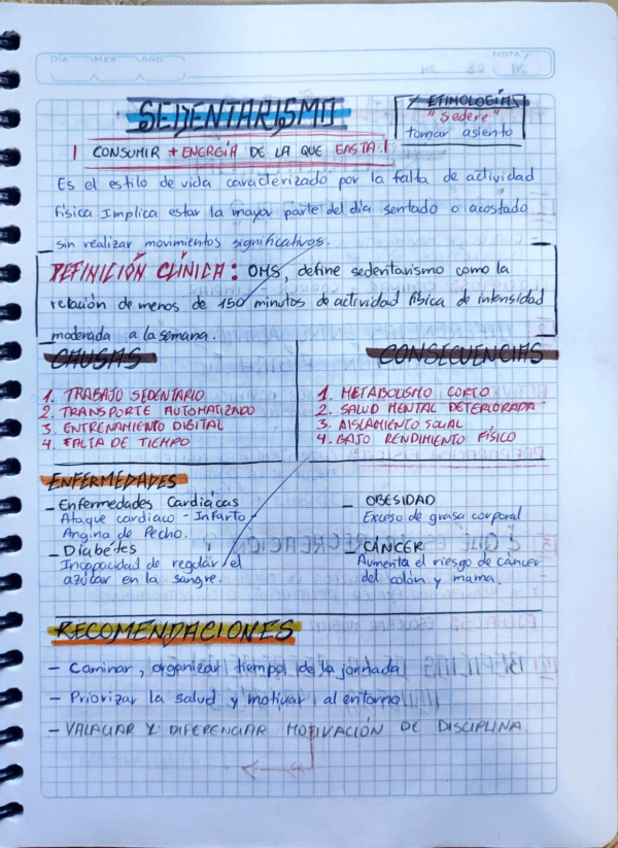 DÍA MES AÑO
NOTA
SEDENTARISMO
ETIMOLOGÍA
"Sedere"
tomar asiento
CONSUMIR + ENERGÍA DE LA QUE GASTA
Es el estilo de vida caracterizado por la falta de actividad
Física Implica estar la mayor parte del día sentado o acostado
sin realizar movimientos significativos.
DEFINICIÓN CLÍNICA: OMS, define sedentarismo como la
relación de menos de 150 minutos de actividad física de intensidad
moderada a la semana.
CAUSAS
1. TRABAJO SEDENTARIO
2. TRANSPORTE AUTOMATIZADO
3. ENTRENAMIENTO DIGITAL
4. FALTA DE TIEMPO
CONSECUENCIAS
1. METABOLISMO CORTO
2. SALUD MENTAL DETERIORADA
3. AISLAMIENTO SOCIAL
4. BAJO RENDIMIENTO FÍSICO
ENFERMEDADES
- Enfermedades Cardíacas
Ataque cardiaco - Infarto -
Angina de Pecho.
- Diabétes
Incapacidad de regular el
azúcar en la sangre.
- OBESIDAD
Exceso de grasa corporal
- CÁNCER
Aumenta el riesgo de cáncer
del colón y mama.
RECOMENDACIONES
- Caminar, organizar tiempo de la jornada
- Priorizar la salud y motivar al entorno
- Y DIFERENCIAR MOTIVACIÓN DE DISCIPLINA.